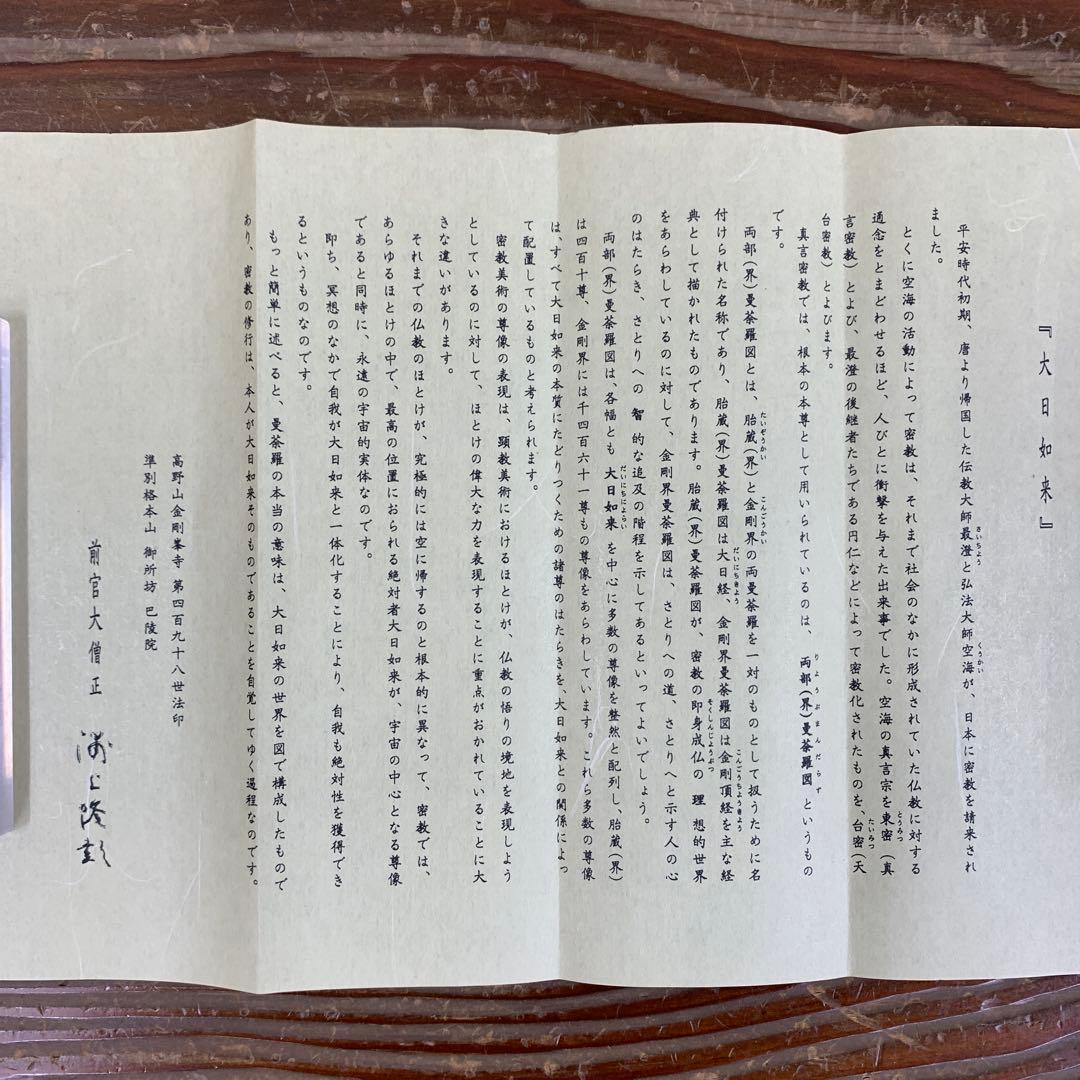 『大日如来』
平安時代初期、唐より帰国した伝教大師最澄と弘法大師空海が、日本に密教を請来され
ました。
とくに空海の活動によって密教は、それまで社会のなかに形成されていた仏教に対する
通念をとまどわせるほど、人びとに衝撃を与えた出来事でした。空海の真言宗を東密（真
言密教）とよび、最澄の後継者たちである円仁などによって密教化されたものを、台密（天
台密教）とよびます。
真言密教では、根本の本尊として用いられているのは、両部（界）曼荼羅図というもの
です。
両部（界）曼荼羅図とは、胎蔵（界）と金剛界の両曼荼羅を一対のものとして扱うために名
付けられた名称であり、胎蔵（界）曼荼羅図は大日経、金剛界曼荼羅図は金剛頂経を主な経
典として描かれたものであります。胎蔵（界）曼荼羅図が、密教の即身成仏の理想的世界
をあらわしているのに対して、金剛界曼荼羅図は、さとりへの道、さとりへと示す人の心
のはたらき、さとりへの智的な追及の階程を示してあるといってよいでしょう。
両部（界）曼荼羅図は、各幅とも大日如来を中心に多数の尊像を整然と配列し、胎蔵（界）
は四百十尊、金剛界には千四百六十一尊もの尊像をあらわしています。これら多数の尊像
は、すべて大日如来の本質にたどりつくための諸尊のはたらきを、大日如来との関係によっ
て配置しているものと考えられます。
密教美術の尊像の表現は、顕教美術におけるほとけが、仏教の悟りの境地を表現しよう
としているのに対して、ほとけの偉大な力を表現することに重点がおかれていることに大
きな違いがあります。
それまでの仏教のほとけが、究極的には空に帰するのと根本的に異なって、密教では、
あらゆるほとけの中で、最高の位置におられる絶対者大日如来が、宇宙の中心となる尊像
であると同時に、永遠の宇宙的実体なのです。
即ち、冥想のなかで自我が大日如来と一体化することにより、自我も絶対性を獲得でき
るというものなのです。
もっと簡単に述べると、曼荼羅の本当の意味は、大日如来の世界を図で構成したもので
あり、密教の修行は、本人が大日如来そのものであることを自覚してゆく過程なのです。
高野山金剛峯寺 第四百九十八世法印
準別格本山 御所坊 巴陵院
前官大僧正